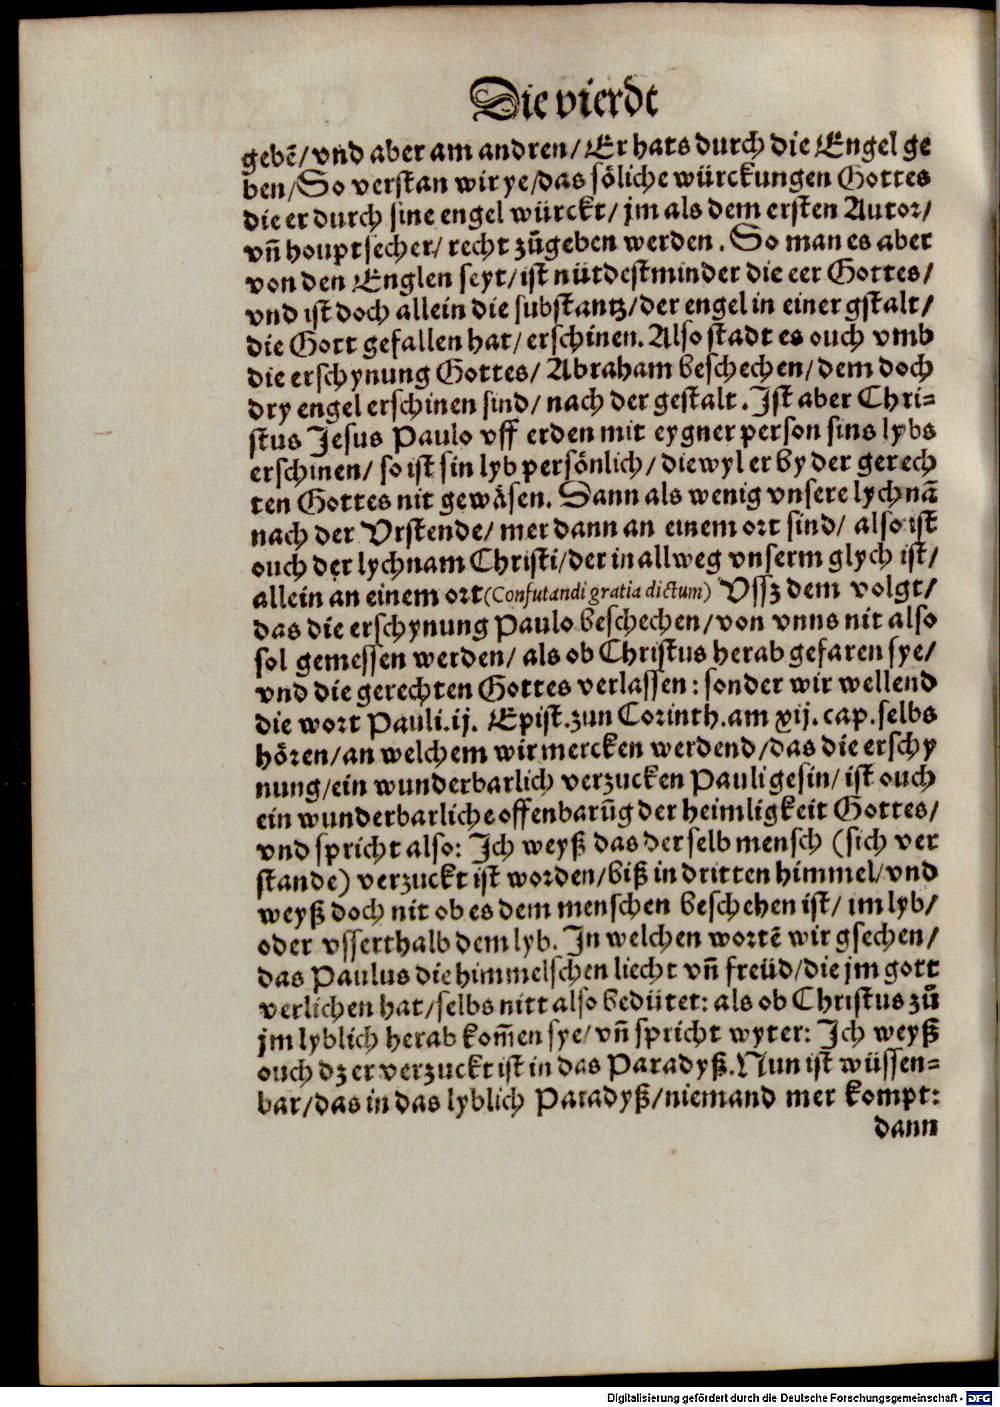 Die vierdt
gebē/ vnd aber am andren/ Er hats durch die Engel ge
ben/ So verstan wir ye/ das söliche würckungen Gottes
die er durch sine engel würckt/ jm als dem ersten Autor/
vñ houptsecher/ recht zůgeben werden. So man es aber
von den Englen seyt/ ist nütdestminder die eer Gottes/
vnd ist doch allein die substantz/ der engel in einer gstalt/
die Gott gefallen hat/ erschinen. Also stadt es ouch vmb
die erschynung Gottes/ Abraham beschechen/ dem doch
dry engel erschinen sind/ nach der gestalt. Ist aber Chri=
stus Jesus Paulo vff erden mit eygner person sins lybs
erschinen/ so ist sin lyb persönlich/ diewyl er by der gerech
ten Gottes nit gewäsen. Dann als wenig vnsere lychnā
nach der Vrstende/ mer dann an einem ort sind/ also ist
ouch der lychnam Christi/ der in allweg vnserm glych ist/
allein an einem ort (Confutandi gratia dictum) Vssz dem volgt/
das die erschynung Paulo beschechen/ von vnns nit also
sol gemessen werden/ als ob Christus herab gefaren sye/
vnd die gerechten Gottes verlassen: sonder wir wellend
die wort Pauli .ij. Epist. zun Corinth. am xij. cap. selbs
hören/ an welchem wir mercken werdend/ das die erschy
nung/ ein wunderbarlich verzucken Pauli gesin/ ist ouch
ein wunderbarliche offenbarūg der heimligkeit Gottes/
vnd spricht also: Ich weyß das der selb mensch (sich ver
stande) verzuckt ist worden/ biß in dritten himmel/ vnd
weyß doch nit ob es dem menschen beschehen ist/ im lyb/
oder vsserthalb dem lyb. In welchen wortē wir gsechen/
das Paulus die himmelschen liecht vñ freüd/ die jm gott
verlichen hat/ selbs nitt also bedütet: als ob Christus zů
jm lyblich herab kom̄en sye/ vñ spricht wyter: Ich weyß
ouch dz er verzuckt ist in das Paradyß. Nun ist wüssen=
bar/ das in das lyblich Paradyß/ niemand mer kompt:
dann
Digitalisierung gefördert durch die Deutsche Forschungsgemeinschaft - DFG